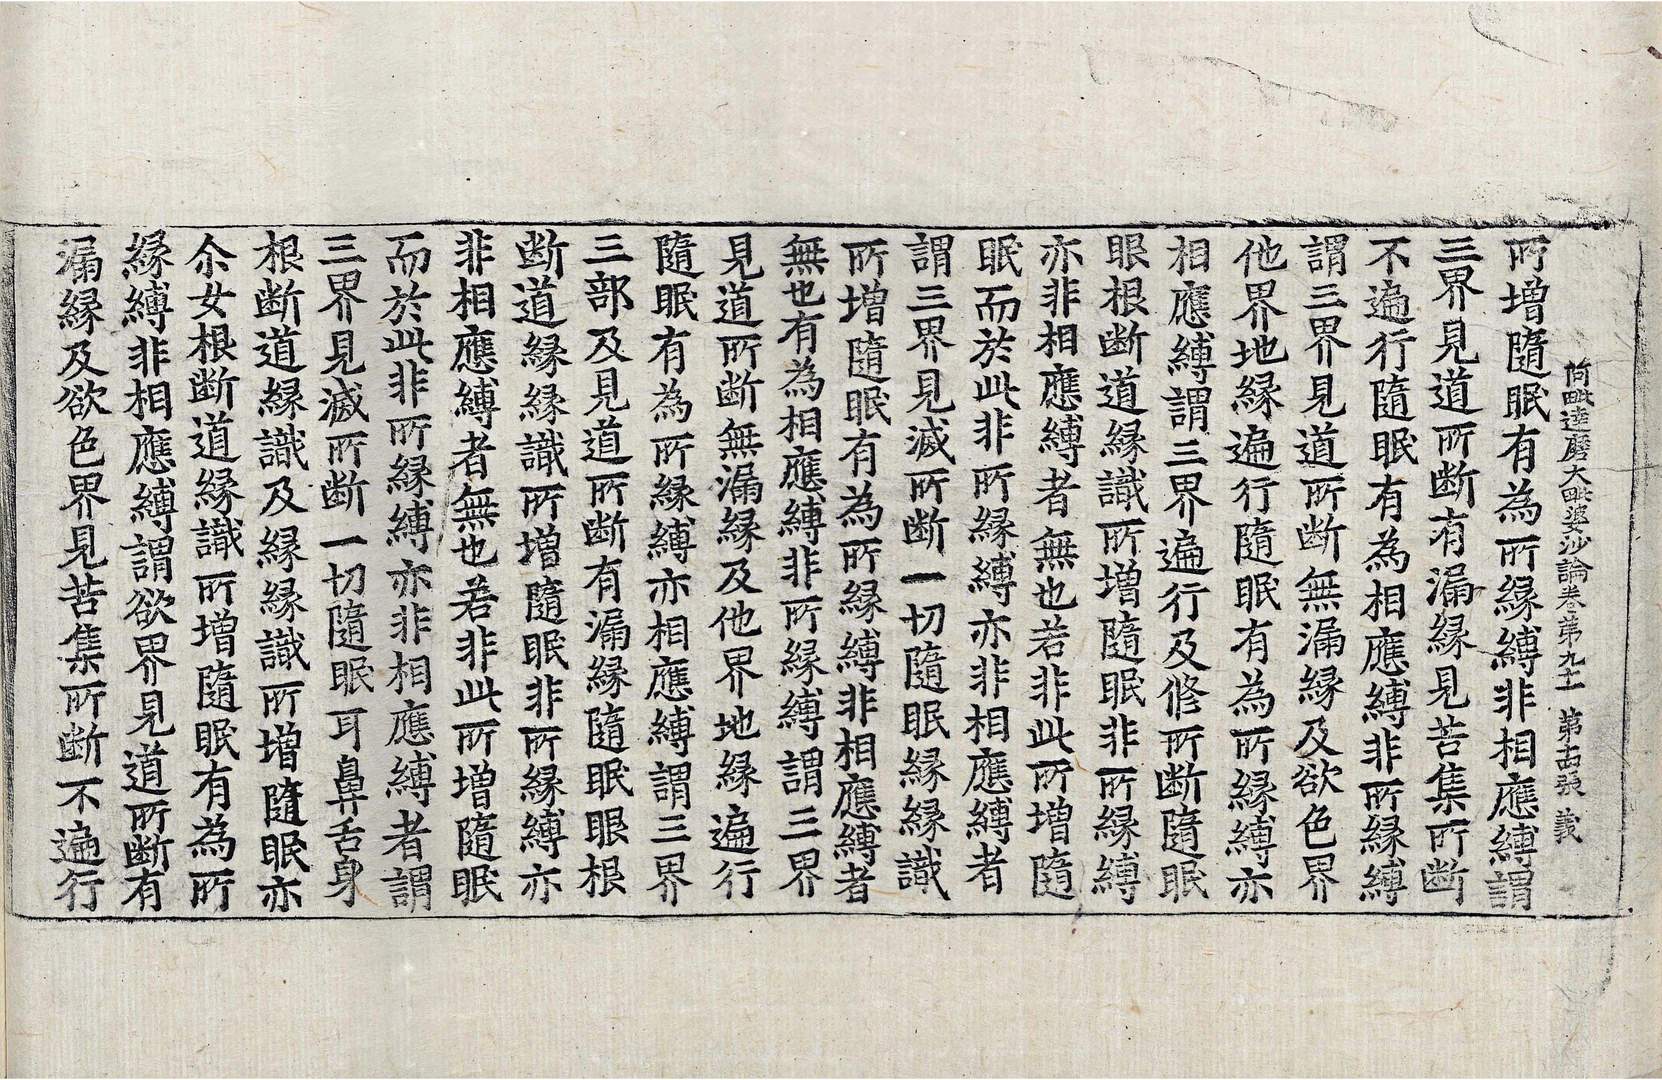 阿毗達磨大毗婆沙論卷第九十一 第十四張 義
所增隨眠有為所緣縛非相應縛謂
三界見道所斷有漏緣見苦集所斷
不遍行隨眠有為相應縛非所緣縛
謂三界見道所斷無漏緣及欲色界
他界地緣遍行隨眠有為所緣縛亦
相應縛謂三界遍行及修所斷隨眠
眼根斷道緣識所增隨眠非所緣縛
亦非相應縛者無也若非此所增隨
眠而於此非所緣縛亦非相應縛者
謂三界見滅所斷一切隨眠緣緣識
所增隨眠有為所緣縛非相應縛者
無也有為相應縛非所緣縛謂三界
見道所斷無漏緣及他界地緣遍行
隨眠有為所緣縛亦相應縛謂三界
三部及見道所斷有漏緣隨眠眼根
斷道緣緣識所增隨眠非所緣縛亦
非相應縛者無也若非此所增隨眠
而於此非所緣縛亦非相應縛者謂
三界見滅所斷一切隨眠耳鼻舌身
根斷道緣識及緣緣識所增隨眠亦
尒女根斷道緣識所增隨眠有為所
緣縛非相應縛謂欲界見道所斷有
漏緣及欲色界見苦集所斷不遍行